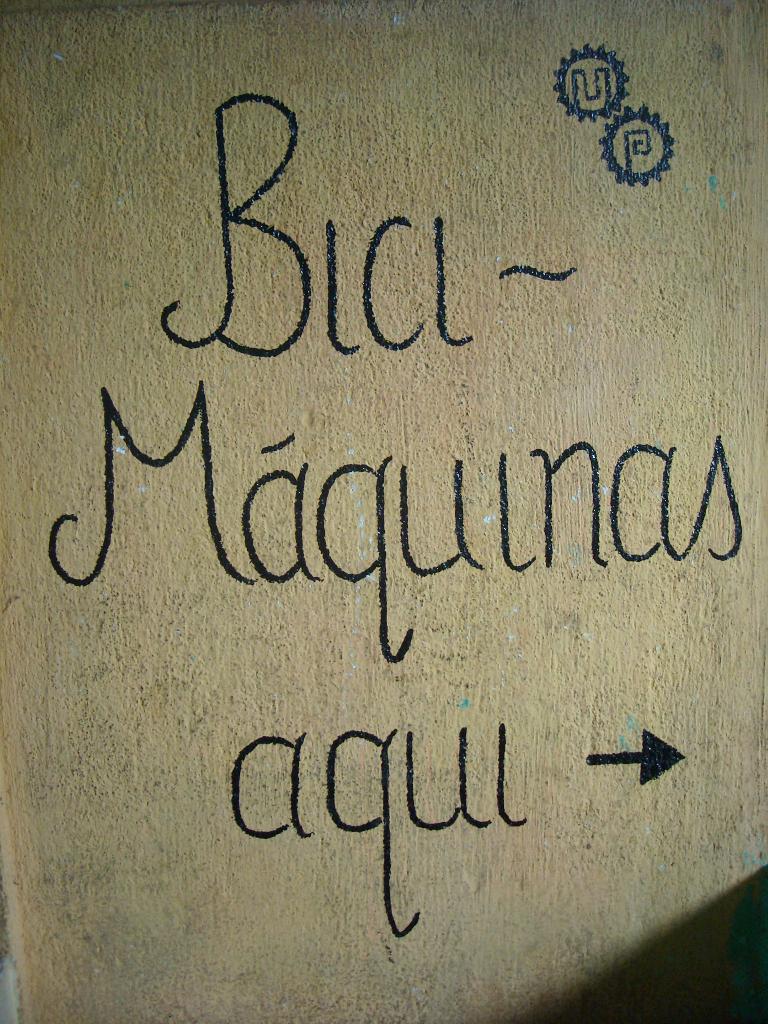 U
P
Bici-
Máquinas
aqui →